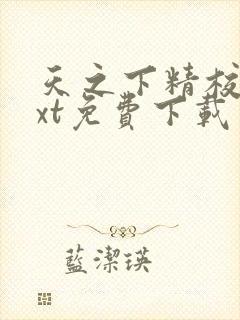 天之下精校
xt免費下載
藍潔瑛